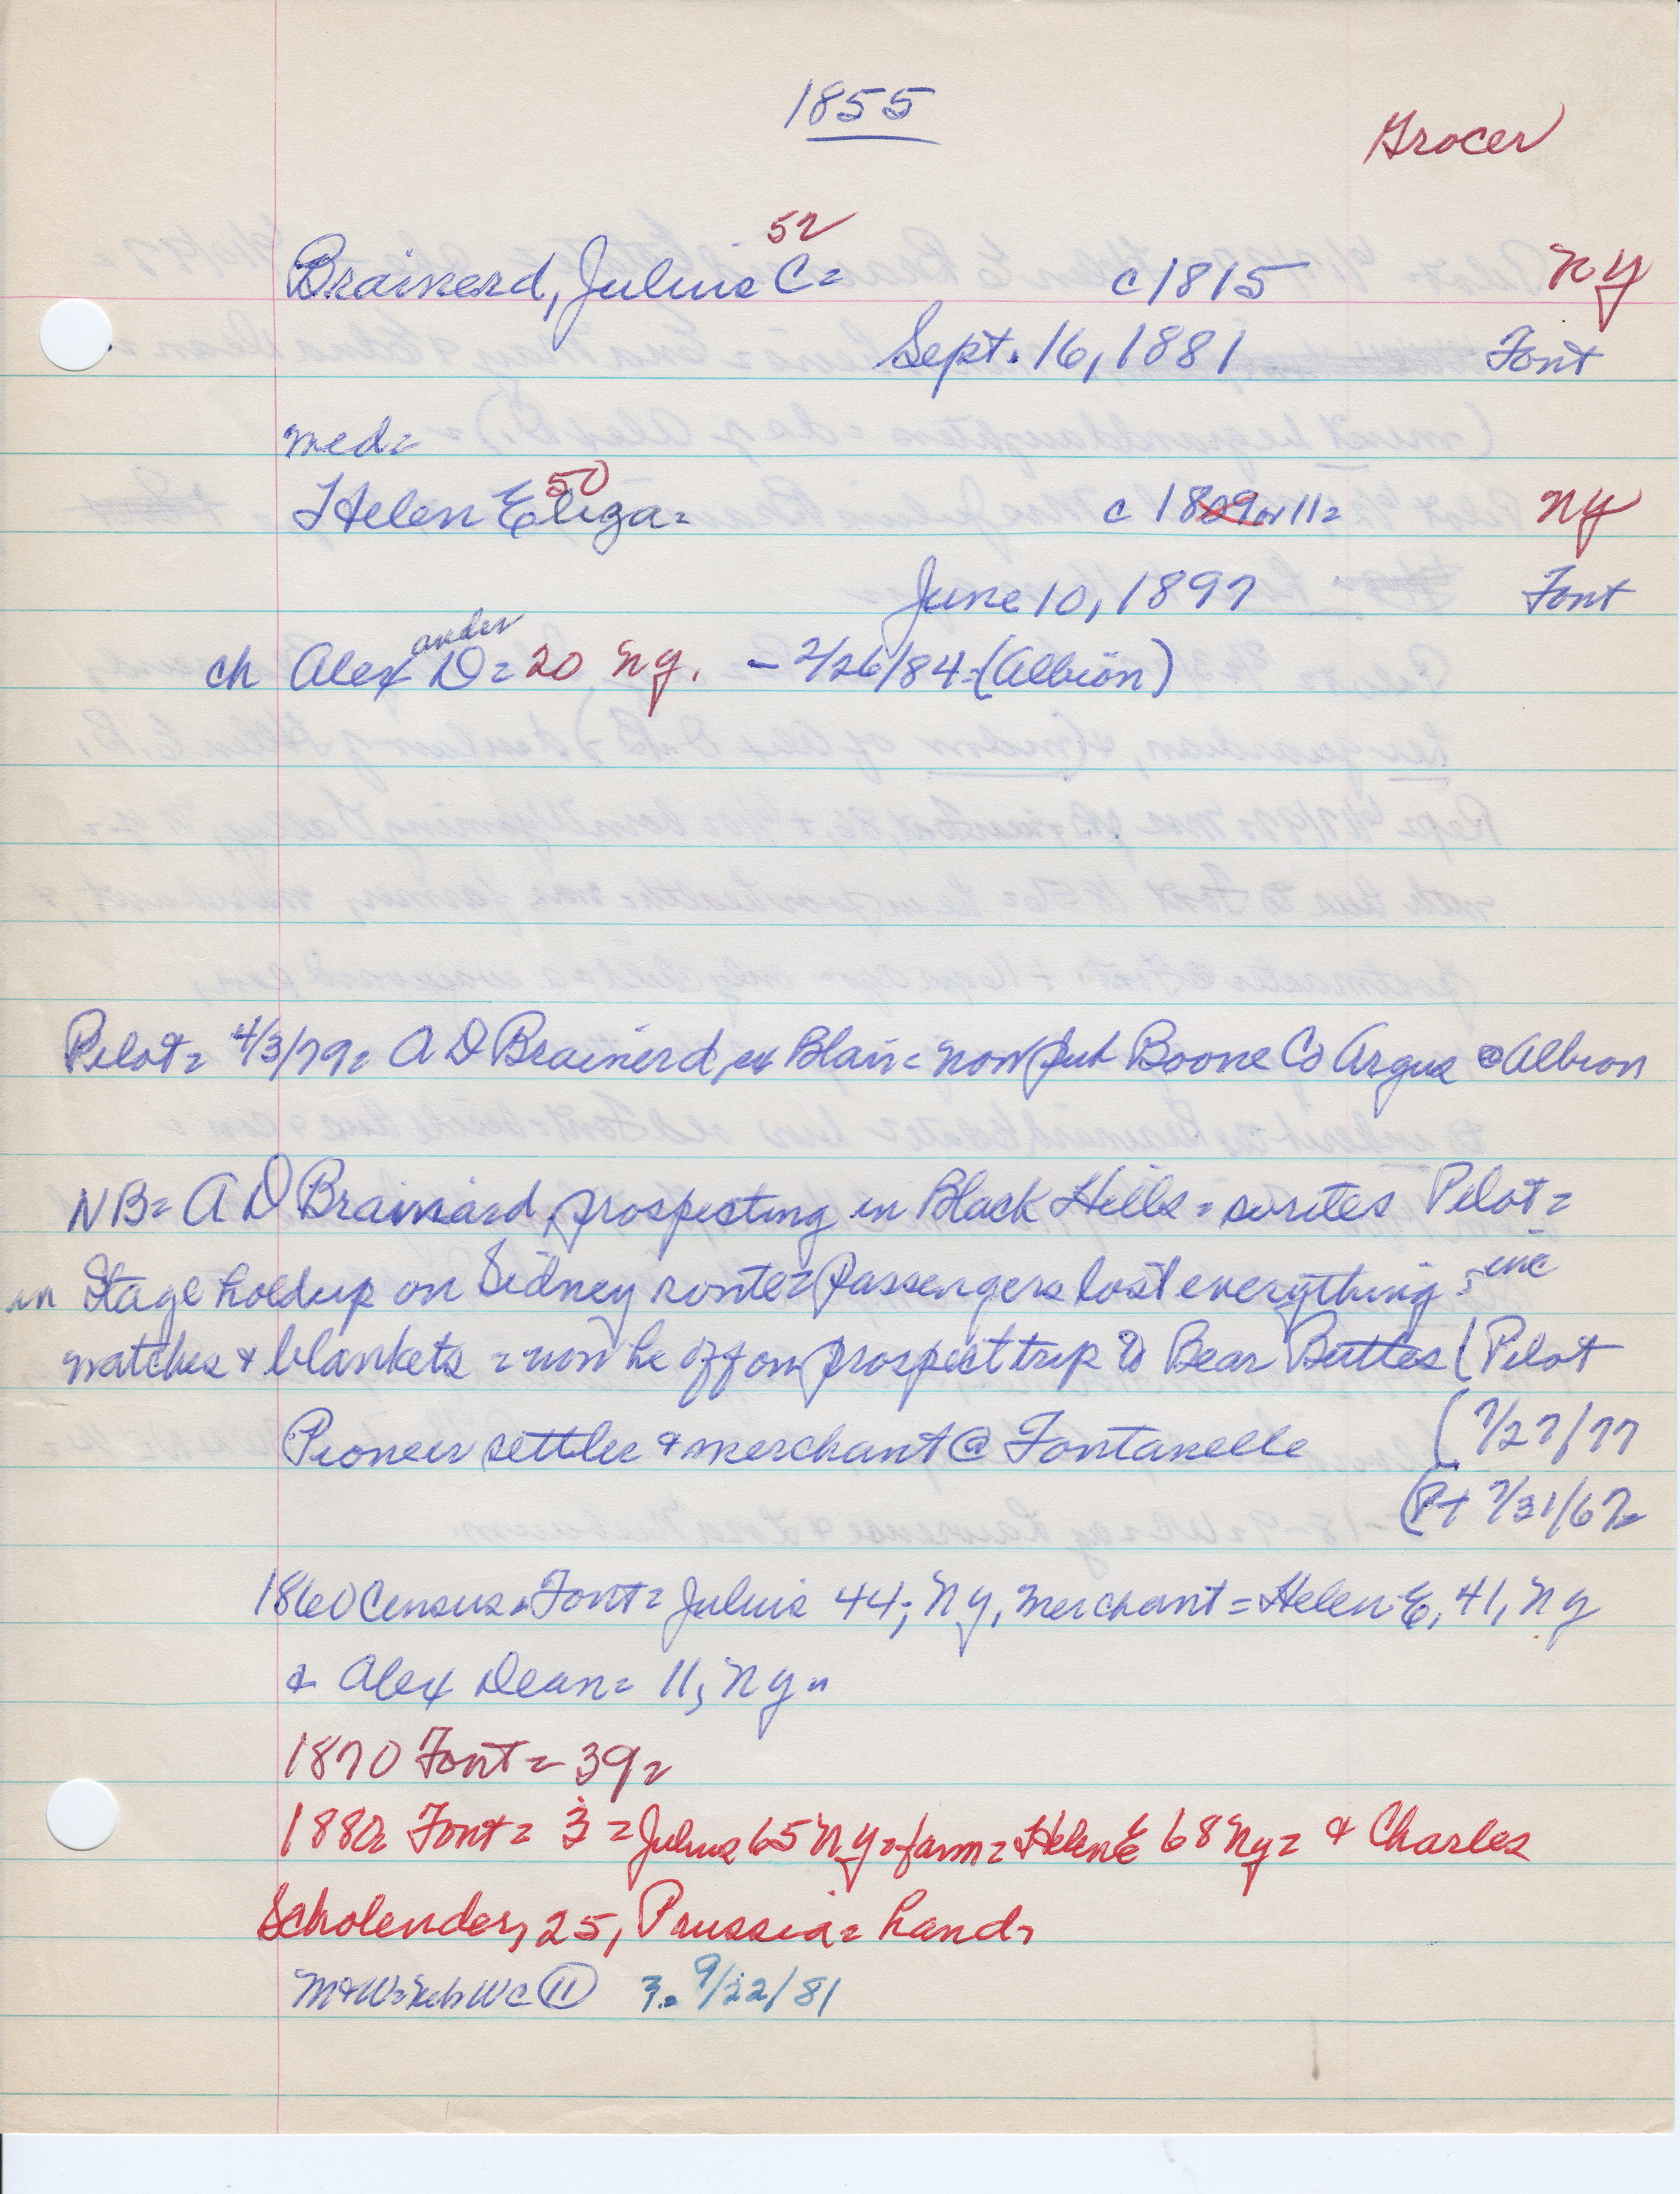 1855
Grocer
52
Brainerd, Julius C= c1815 NY
Sept. 16, 1881 Font
med=
50
Helen Eliza= c 1809 or 11= NY
June 10, 1897 Font
ander
ch Alex D= 20 NY. - 2/26/84-(Albion)
Pilot= 4/3/79= A D Brainerd, ex Blair= now pub Boone Co Argus @ Albion
NB= A D Brainard prospecting in Black Hills= writes Pilot=
in Stage holdup on Sidney route= passengers lost everything inc
watches & blankets = now he off on prospect trip to Bear Buttes (Pilot
Pioneer settler & merchant @ Fontanelle (7/27/77
(Pt 7/31/67=
1860 Census= Font= Julius 44, NY, merchant= Helen E, 41, NY
& Alex Dean= 11, NY=
1870 Font= 39=
1880= Font= 3= Julius 65 NY= farm= Helen E 68 NY= & Charles
Scholender, 25, Prussia= hand,
M&W= Neb WC (11) 9/22/81